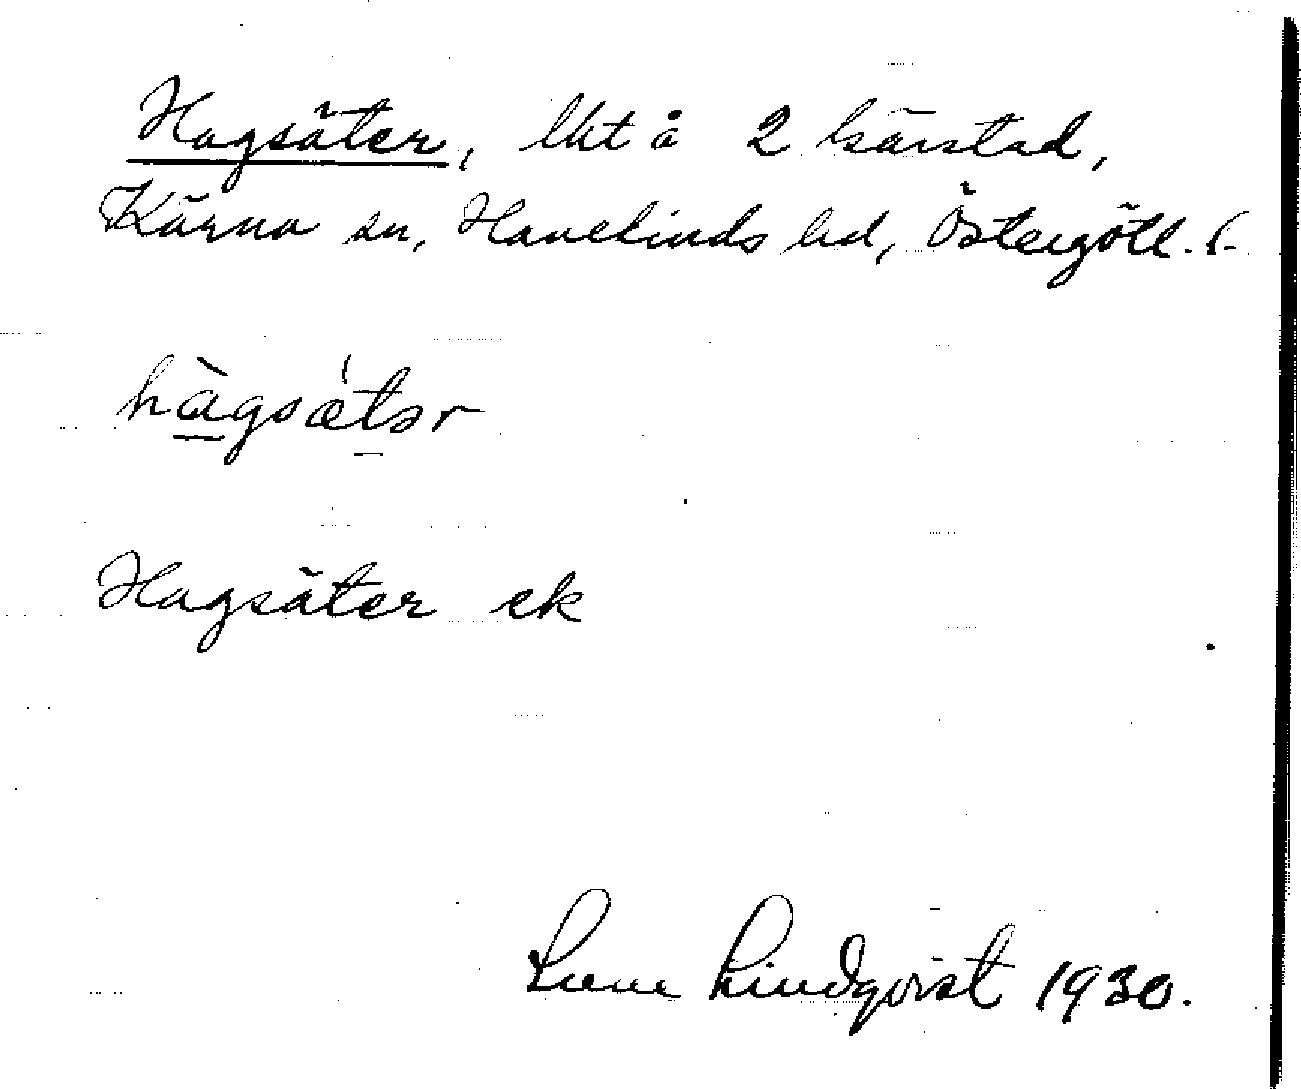 Hagsäter, lht å 2 Kärstad,
Kärna sn, Hanekinds hd, Östergötl. l.
hàgsǽtər
Hagsäter ek
Sune Lindqvist 1930.